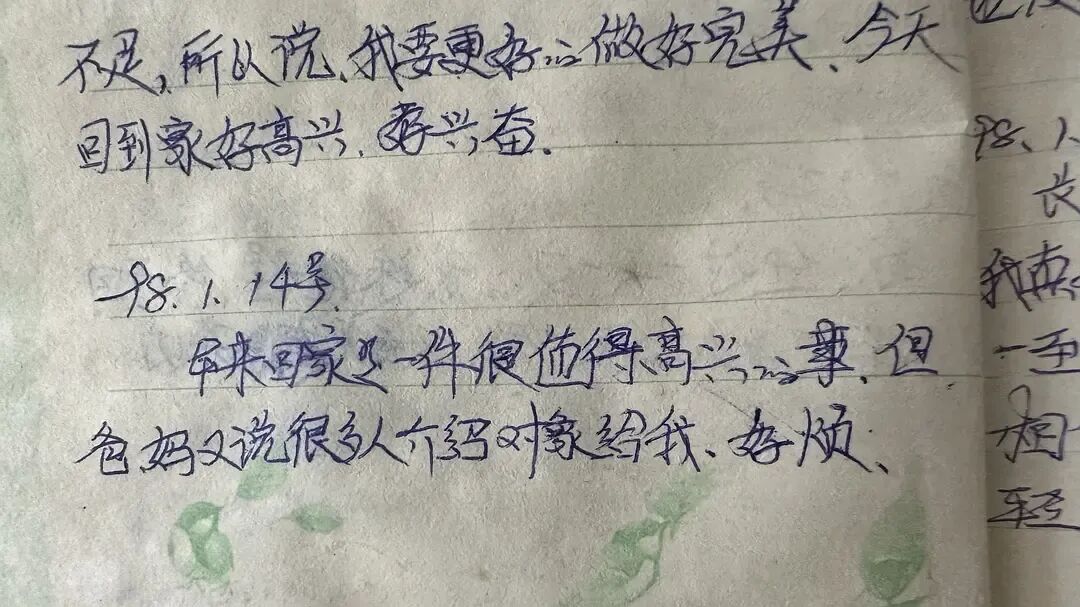 不足,所以说、我要更好的做好完美、今天
回到家好高兴、好兴奋.
98.1.14号.
本来回家是一件很值得高兴的事、但
爸妈又说很多人介绍对象给我、好烦、
98、1、
长
我卖
一至
相
轻